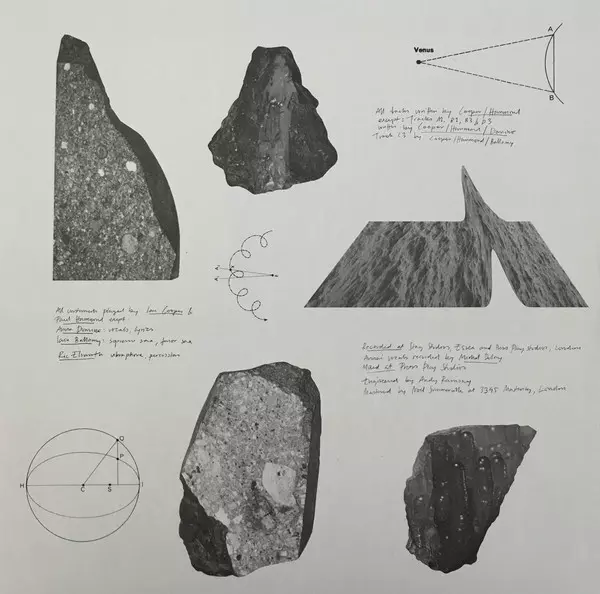 Venus
A
B
All tracks written by Cooper/Hammond
except: Tracks
written by Cooper/Hammond/Domino
Track C3 by Cooper/Hammond/Bellamy
All instruments played by Ian Cooper &
Paul Hammond except
: vocals, lyrics
Bellamy: soprano sax, tenor sax
vibraphone, percussion
Recorded at Play Studios, Essex and Press Play Studios, London
vocals recorded by
Mixed at Press Play Studios
Engineered by Andy
Mastered by Noel Summerville at 3345 Mastering, London
Q
P
H
C
S